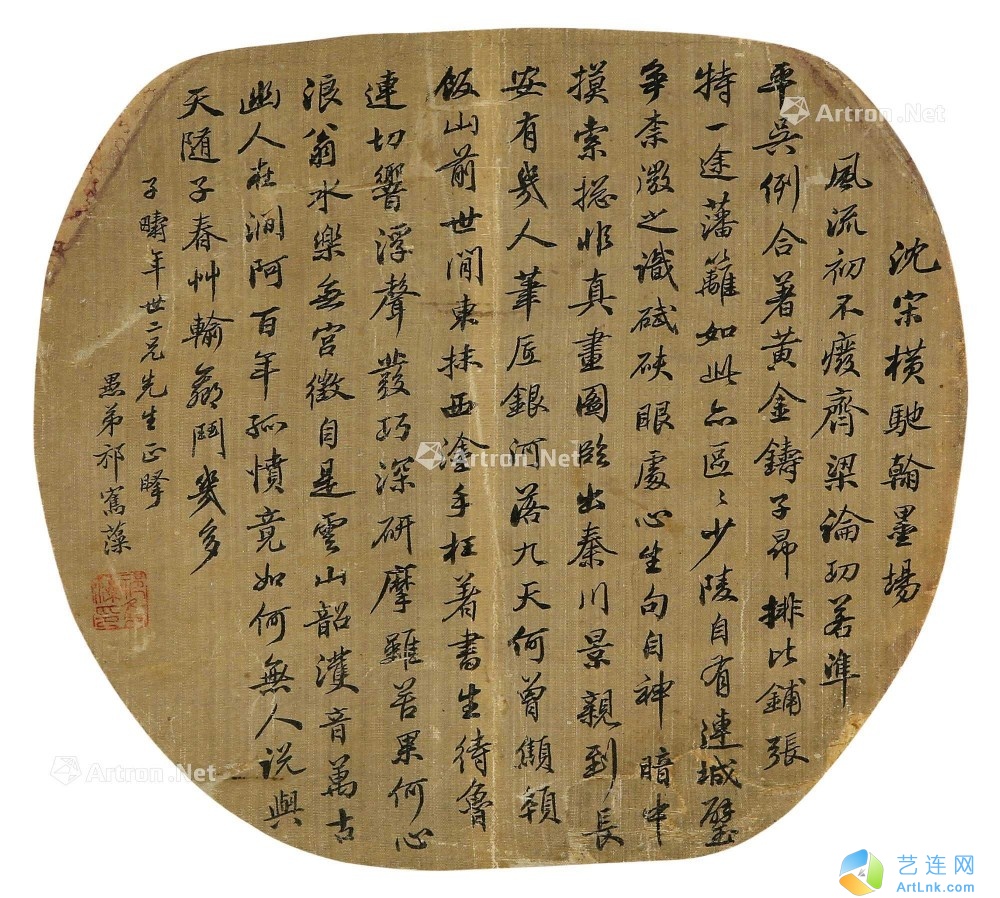 沈宋橫馳翰墨場
風流初不廢齊梁論功若準
平吳例合著黃金鑄子昂排比鋪張
特一途藩籬如此亦區〻少陵自有連城璧
爭柰微之識碔砆眼處心生句自神暗中
摸索揔非真畫圖臨出秦川景親到長
安有幾人筆底銀河落九天何曾顦顇
飯山前世間東抹西塗手枉著書生待魯
連切響浮聲發巧深研摩雖苦果何心
浪翁水樂無宮徵自是雲山韶濩音萬古
幽人在澗阿百年孤憤竟如何無人說與
天隨子春艸輸贏鬥幾多
子疇年世二兄先生正
愚弟祁寯藻
Artron.Net
Artron.Net
Artron.Net
艺连网
ArtLnk.com